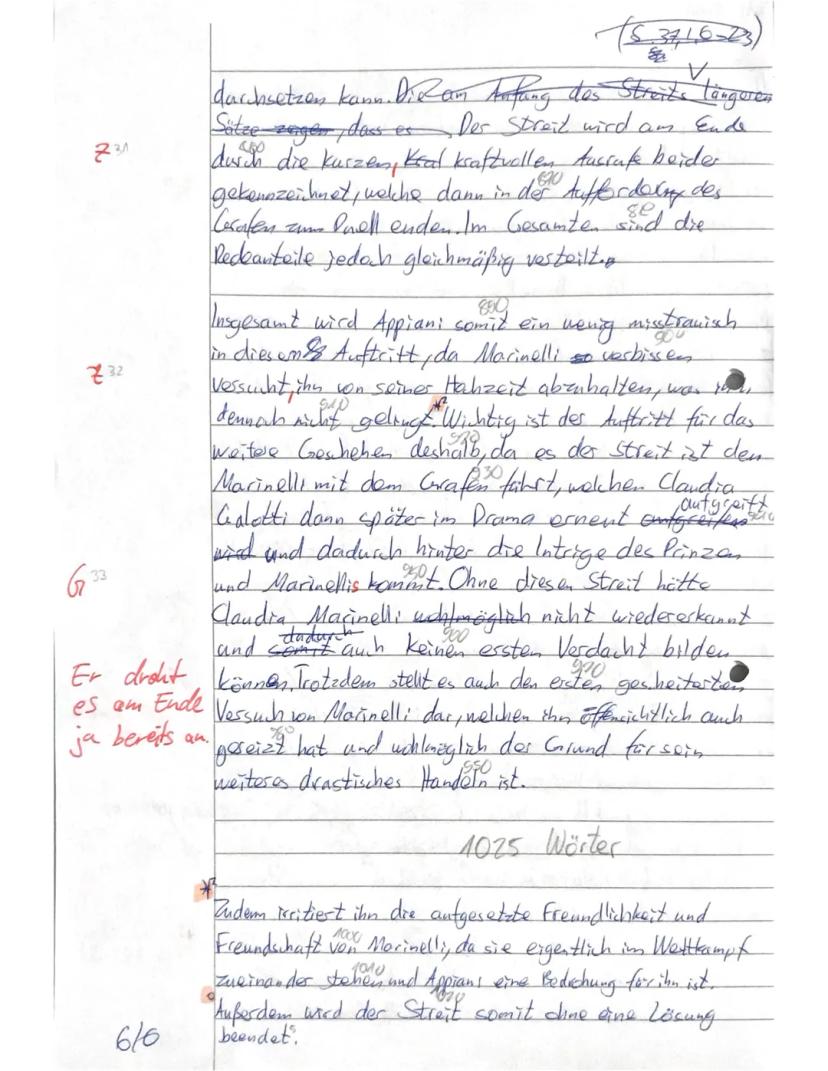 (S. 37, l. 6-23)
durchsetzen kann. Die am Anfang des Streits längeren
Sätze zeigen, dass es Der Streit wird am Ende
Z 31
860
durch die kurzen, kraftvollen Ausrufe beider
870
gekennzeichnet, welche dann in der Aufforderung des
88
Grafen zum Duell enden. Im Gesamten sind die
Redeanteile jedoch gleichmäßig verteilt.
890
Insgesamt wird Appiani somit ein wenig misstrauisch
900
in diesem Auftritt, da Marinelli so verbissen
Z 32
versucht, ihn von seiner Hochzeit abzuhalten, was ihm
910
dennoch nicht gelingt. *² Wichtig ist der Auftritt für das
920
weitere Geschehen deshalb, da es der Streit ist den
930
Marinelli mit dem Grafen führt, welchen Claudia
aufgreift 940
Galotti dann später im Drama erneut aufgreifen
wird und dadurch hinter die Intrige des Prinzen
G 33
950
und Marinellis kommt. Ohne diesen Streit hätte
Claudia Marinelli wohlmöglich nicht wiedererkannt
dadurch 960
und somit auch keinen ersten Verdacht bilden
970
können. Trotzdem stellt es auch den ersten gescheiterten
Versuch von Marinelli dar, welchen ihn offensichtlich auch
gereizt hat und wohlmöglich der Grund für sein
990
weiteres drastisches Handeln ist.
Er droht
es am Ende
ja bereits an.
1025 Wörter
*²
Zudem irritiert ihn die aufgesetzte Freundlichkeit und
1000
Freundschaft von Marinelli, da sie eigentlich im Wettkampf
1010
zueinander stehen und Appiani eine Bedrohung für ihn ist.
1020
Außerdem wird der Streit somit ohne eine Lösung
beendet.
6/6